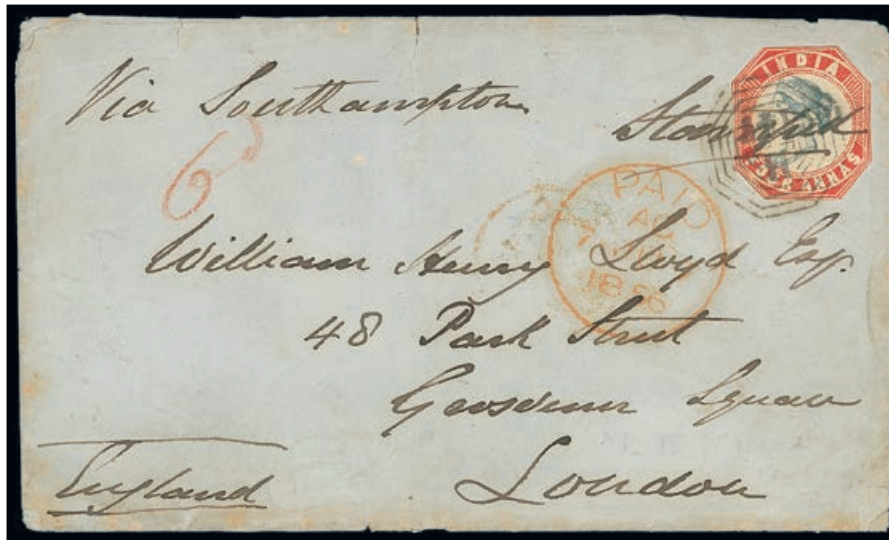 Via Southampton
Stamped
INDIA
FOUR ANNAS
6
PAID
1856
William Henry Lloyd Esq.
48 Park Street
Grosvenor Square
London
England